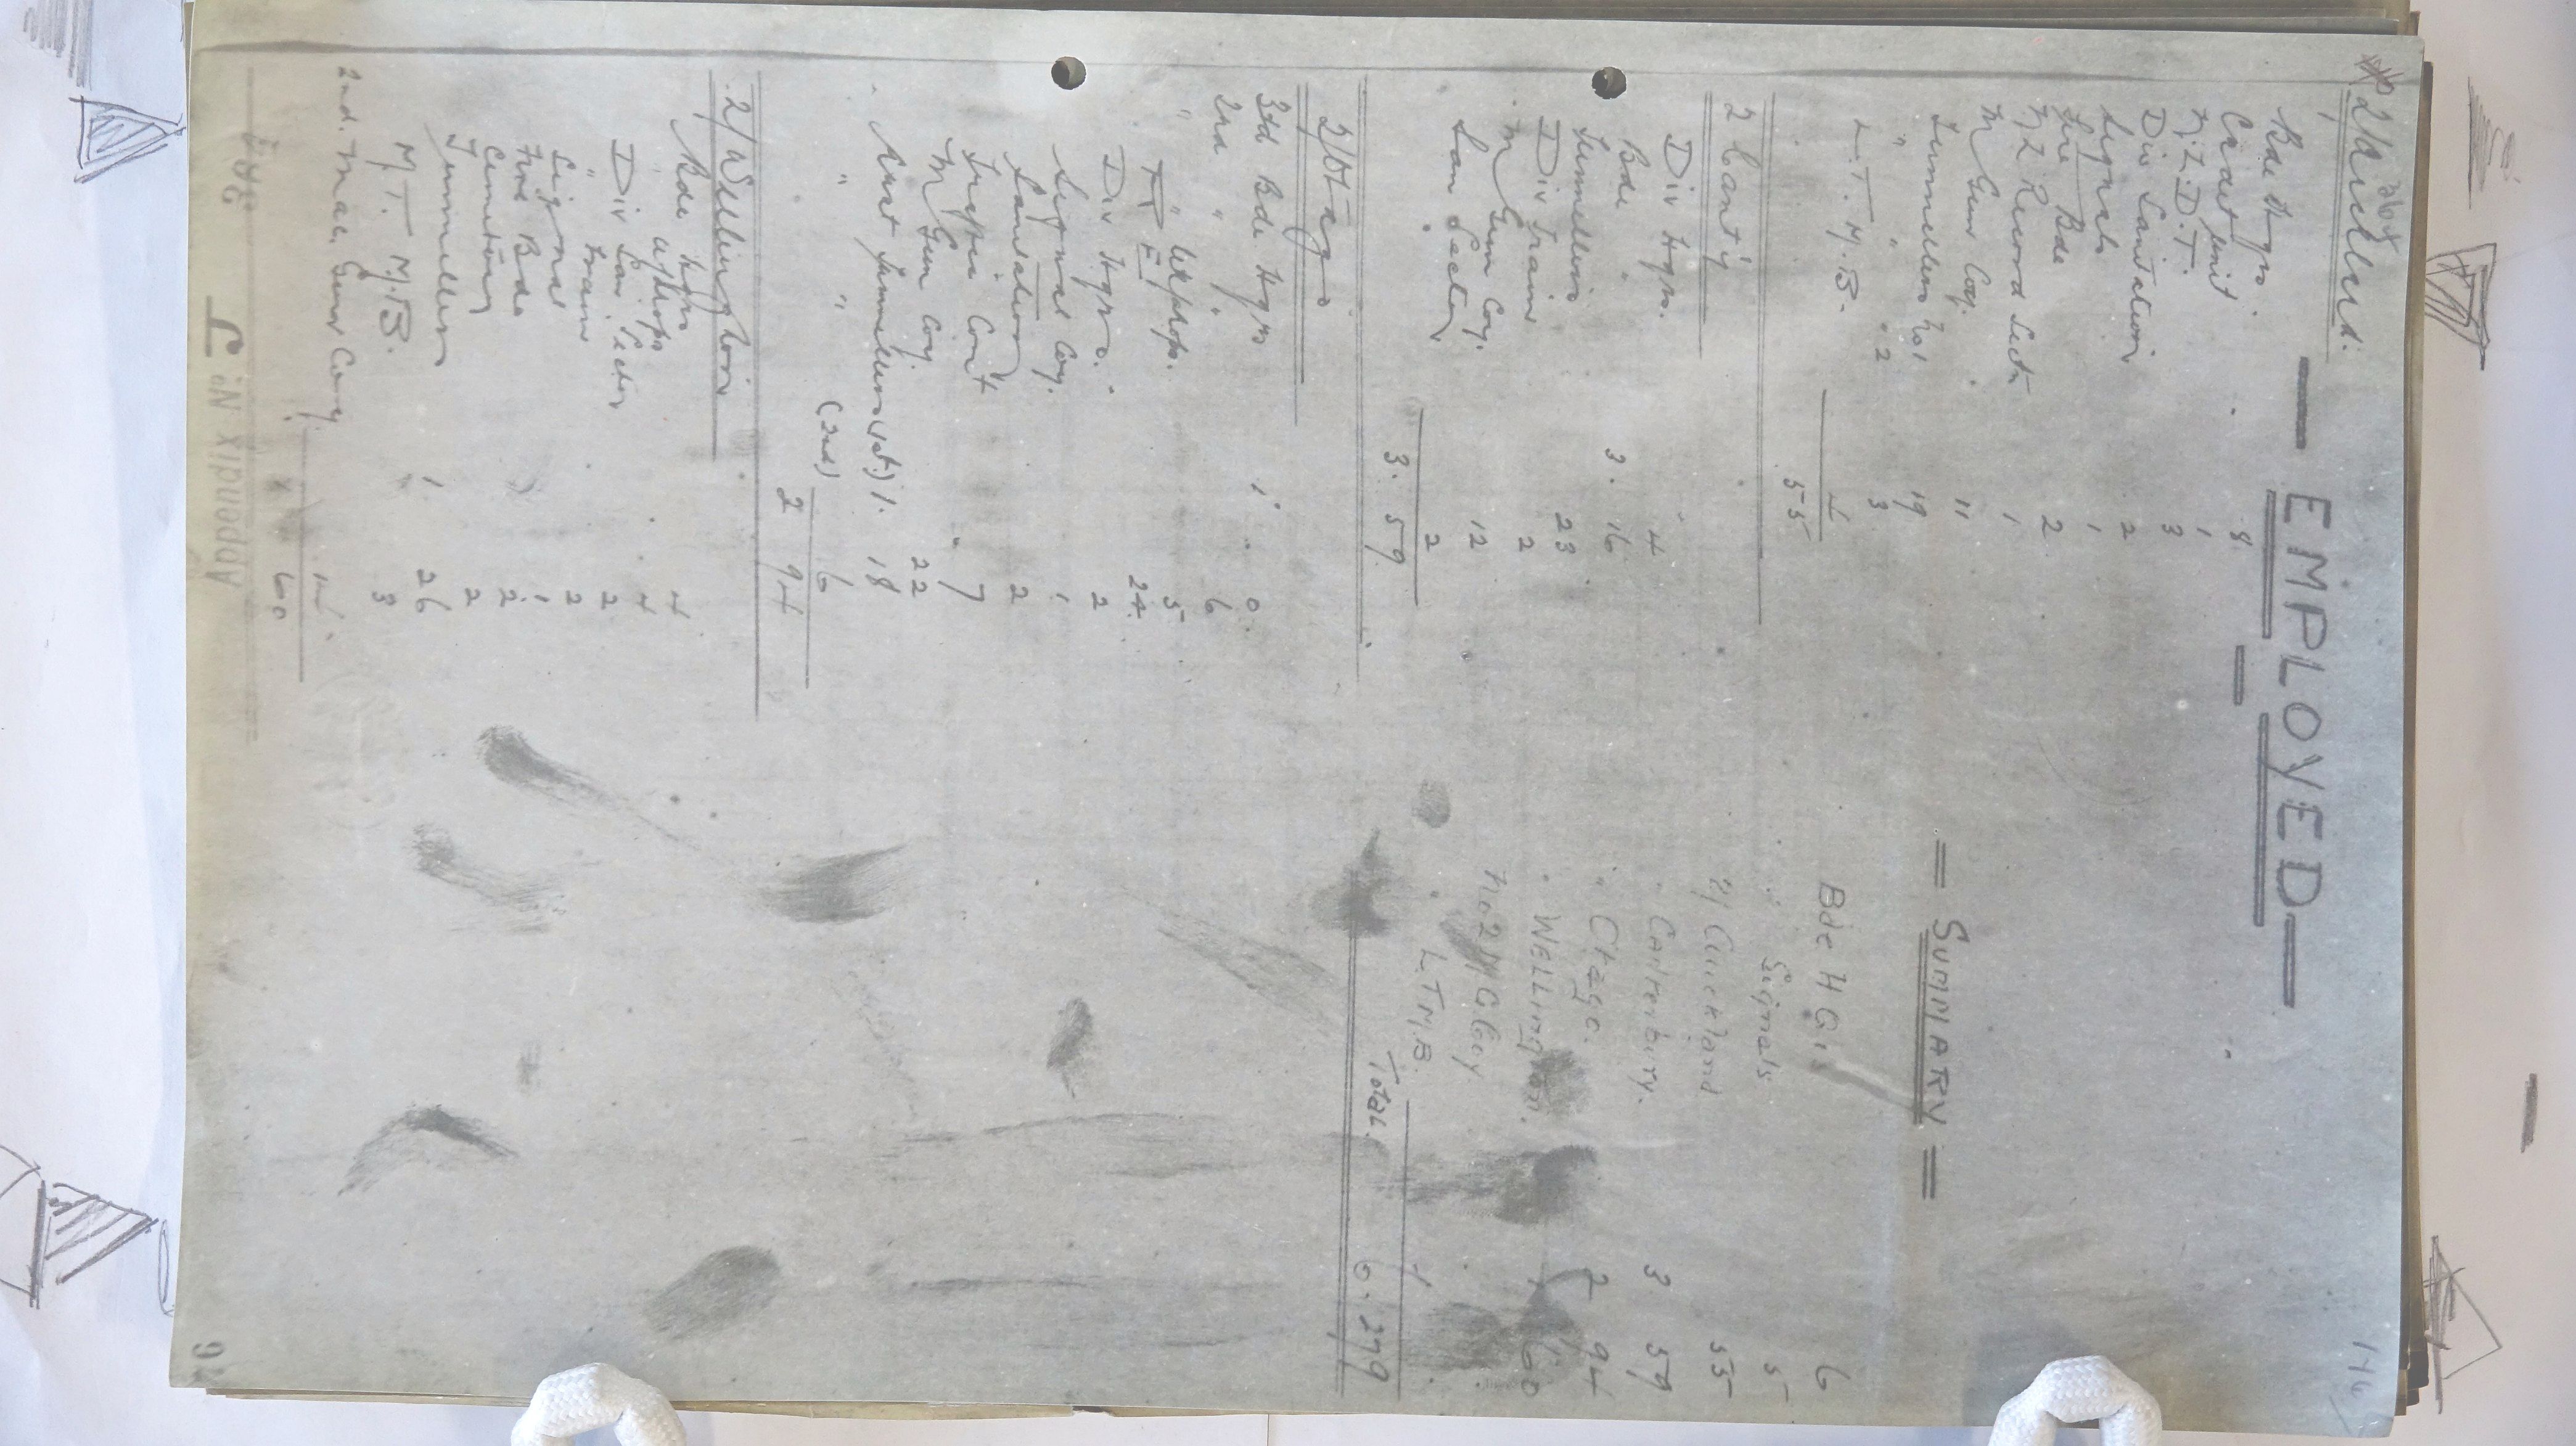 — EMPLOYED —
2/Auckland.
Bde Hqrs. 8
Cadet Unit 1
N.Z.D.T. 3
Div Sanitation 2
Signals 1
Fire Bde 2
N Z Record Sectn 1
M Gun Coy. 11
Tunnellers No 1 19
" " 2 3
L.T.M.B. 4
55
2 Canty
Div Hqrs. 4
Bde " 3. 16
Tunnellers 23
Div Train 2
M Gun Coy. 12
San Section 2
3. 59
2/Otago
3rd Bde Hqrs 1 0.
2nd " " 6
" " 5
24.
Div Hqrs. 2
Signal Coy. 1
Sanitation 2
Traffic Cont 7
M Gun Coy 22
Tunnellers (1st) 1. 18
" " (2nd) 6
2 94
2/Wellington
Bde Hqrs 4
" 4
Div San. Sectn 2
" Train 2
Signal 1
Fire Bde 2
Cemetery 2
Tunnellers 1 26
M.T. M.B. 3
2nd. Mac. Gun Coy. 14.
60
= SUMMARY =
Bde H Qrs 6
" Signals 5
2/ Auckland 55
" Canterbury. 3 59
" Otago. 2 94
" WELLINGTON. 1 60
No 2 M G Coy.
" L T M B.
Total. 6. 279
Appendix No. J